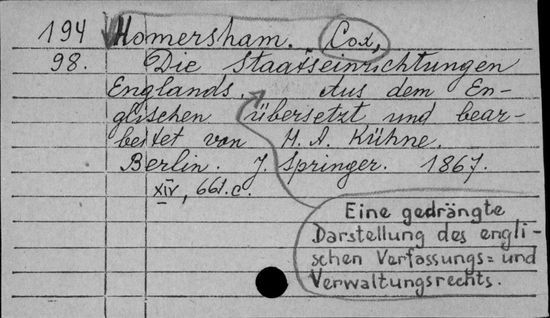 194 Homersham. Cox,
98. Die Staatseinrichtungen
Englands. Aus dem En-
glischen übersetzt und bear-
beitet von H. A. Kühne.
Berlin. J. Springer. 1867.
XIV, 661.c.
Eine gedrängte
Darstellung des engli-
schen Verfassungs= und
Verwaltungsrechts.